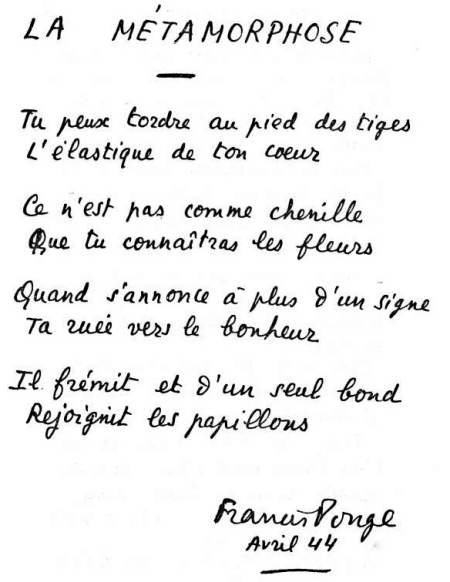 LA MÉTAMORPHOSE
Tu peux tordre au pied des tiges
L'élastique de ton coeur
Ce n'est pas comme chenille
Que tu connaîtras les fleurs
Quand s'annonce à plus d'un signe
Ta ruée vers le bonheur
Il frémit et d'un seul bond
Rejoignit les papillons
Francis Ponge
Avril 44